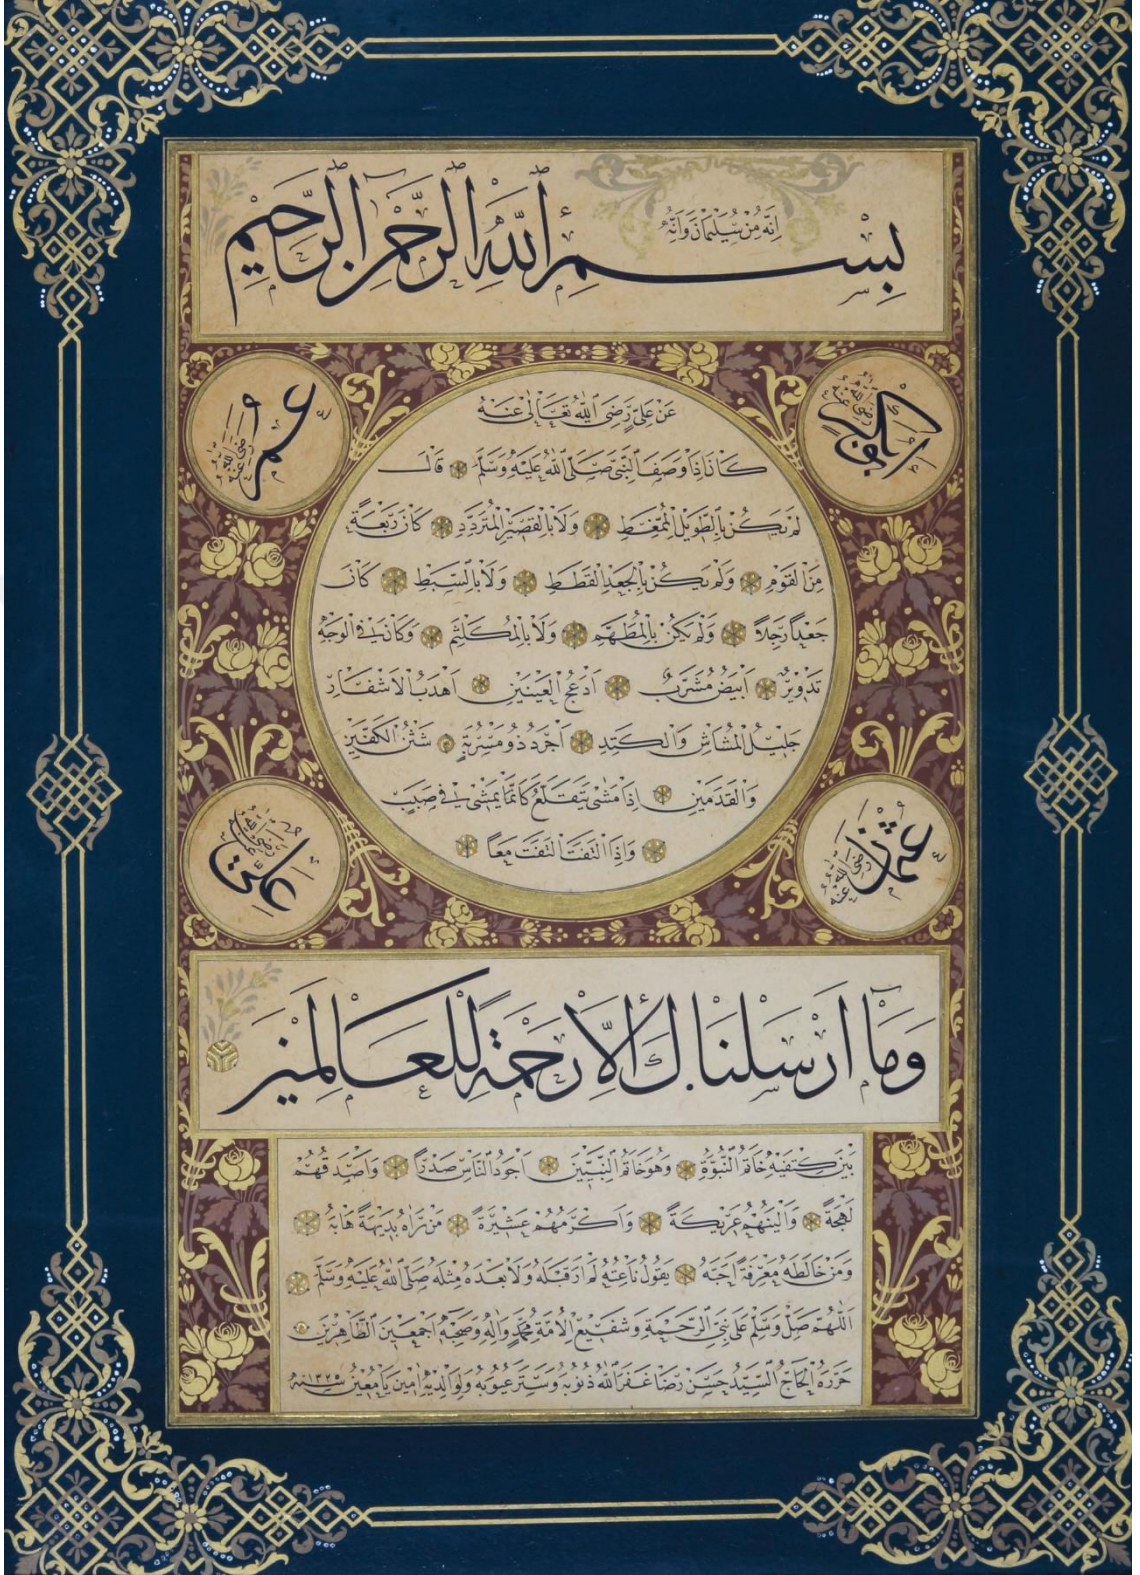 اِنَّهُ مِنْ سُلَيْمَانَ وَاِنَّهُ
بِسْمِ اللّٰهِ الرَّحْمٰنِ الرَّحِيمِ
ابوبكر رضى الله عنه
عُمَر رضى الله عنه
عَنْ عَلِيٍّ رَضِيَ اللّٰهُ تَعَالٰى عَنْهُ
كَانَ اِذَا وَصَفَ النَّبِيَّ صَلَّى اللّٰهُ عَلَيْهِ وَسَلَّمَ قَالَ
لَمْ يَكُنْ بِالطَّوِيلِ الْمُمَّغِطِ وَلَا بِالْقَصِيرِ الْمُتَرَدِّدِ كَانَ رَبْعَةً
مِنَ الْقَوْمِ وَلَمْ يَكُنْ بِالْجَعْدِ الْقَطَطِ وَلَا بِالسَّبِطِ كَانَ
جَعْدًا رَجِلًا وَلَمْ يَكُنْ بِالْمُطَهَّمِ وَلَا بِالْمُكَلْثَمِ وَكَانَ فِي الْوَجْهِ
تَدْوِيرٌ اَبْيَضُ مُشْرَبٌ اَدْعَجُ الْعَيْنَيْنِ اَهْدَبُ الْاَشْفَارِ
جَلِيلُ الْمُشَاشِ وَالْكَتَدِ اَجْرَدُ ذُو مَسْرُبَةٍ شَثْنُ الْكَفَّيْنِ
وَالْقَدَمَيْنِ اِذَا مَشٰى يَتَقَلَّعُ كَاَنَّمَا يَمْشِي فِي صَبَبٍ
وَاِذَا الْتَفَتَ الْتَفَتَ مَعًا
عُثْمَان رضى الله عنه
عَلِيّ رضى الله عنه
وَمَا اَرْسَلْنَاكَ اِلَّا رَحْمَةً لِلْعَالَمِينَ
بَيْنَ كَتِفَيْهِ خَاتَمُ النُّبُوَّةِ وَهُوَ خَاتَمُ النَّبِيِّينَ اَجْوَدُ النَّاسِ صَدْرًا وَاَصْدَقُهُمْ
لَهْجَةً وَاَلْيَنُهُمْ عَرِيكَةً وَاَكْرَمُهُمْ عَشِيرَةً مَنْ رَاٰهُ بَدِيهَةً هَابَهُ
وَمَنْ خَالَطَهُ مَعْرِفَةً اَحَبَّهُ يَقُولُ نَاعِتُهُ لَمْ اَرَ قَبْلَهُ وَلَا بَعْدَهُ مِثْلَهُ صَلَّى اللّٰهُ عَلَيْهِ وَسَلَّمَ
اَللّٰهُمَّ صَلِّ وَسَلِّمْ عَلٰى نَبِيِّ الرَّحْمَةِ وَشَفِيعِ الْاُمَّةِ مُحَمَّدٍ وَاٰلِهِ وَصَحْبِهِ اَجْمَعِينَ الطَّاهِرِينَ
حَرَّرَهُ الْحَاجُّ السَّيِّدُ حَسَنْ رِضَا غَفَرَ اللّٰهُ ذُنُوبَهُ وَسَتَرَ عُيُوبَهُ وَلِوَالِدَيْهِ اٰمِينَ يَا مُعِينُ سنه ١٣٢٥